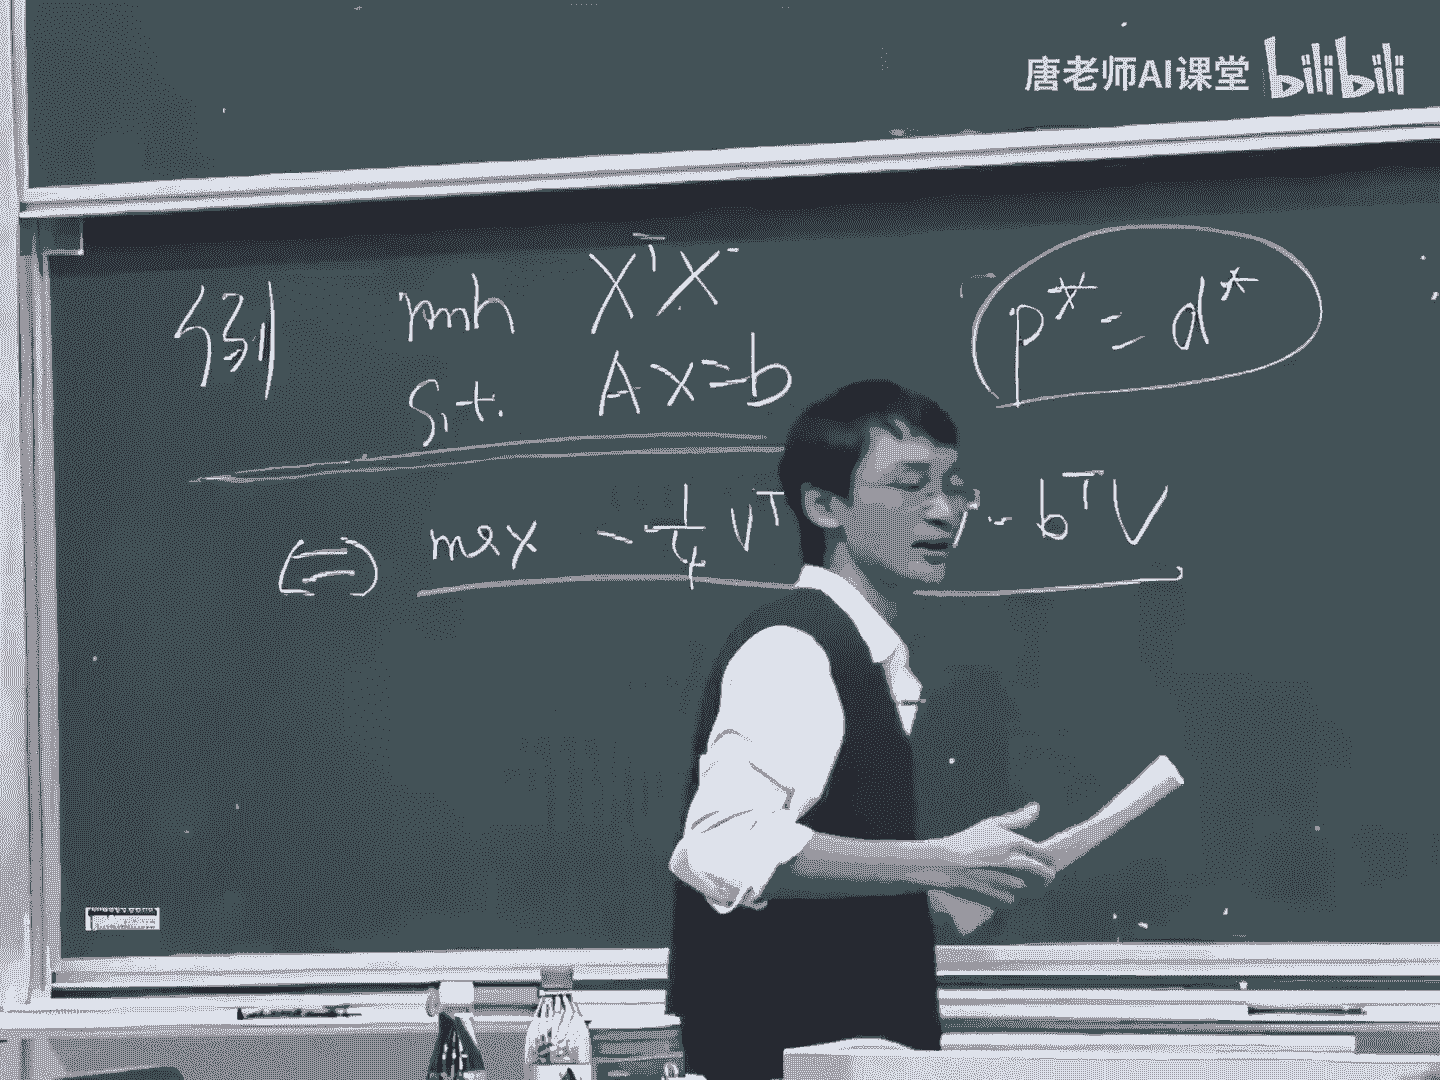 唐老师AI课堂 bilibili
例 min X^T X
s.t. Ax=b
p* = d*
(=) max -1/4 v^T - b^T V